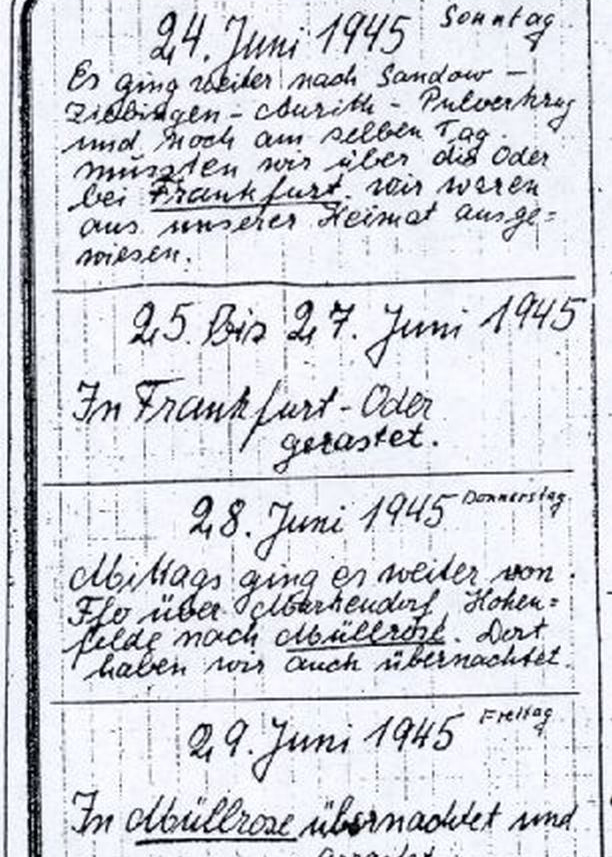 24. Juni 1945 Sonntag
Es ging weiter nach Sandow –
Ziebingen – Aurith – Pulverkrug
und noch am selben Tag
mussten wir über die Oder
bei Frankfurt. Wir waren
aus unserer Heimat ausge=
wiesen.
25. bis 27. Juni 1945
In Frankfurt-Oder
gerastet.
28. Juni 1945 Donnerstag
Mittags ging es weiter von
Ffo über Markendorf, Hohen=
felde nach Müllrose. Dort
haben wir auch übernachtet.
29. Juni 1945 Freitag
In Müllrose übernachtet und